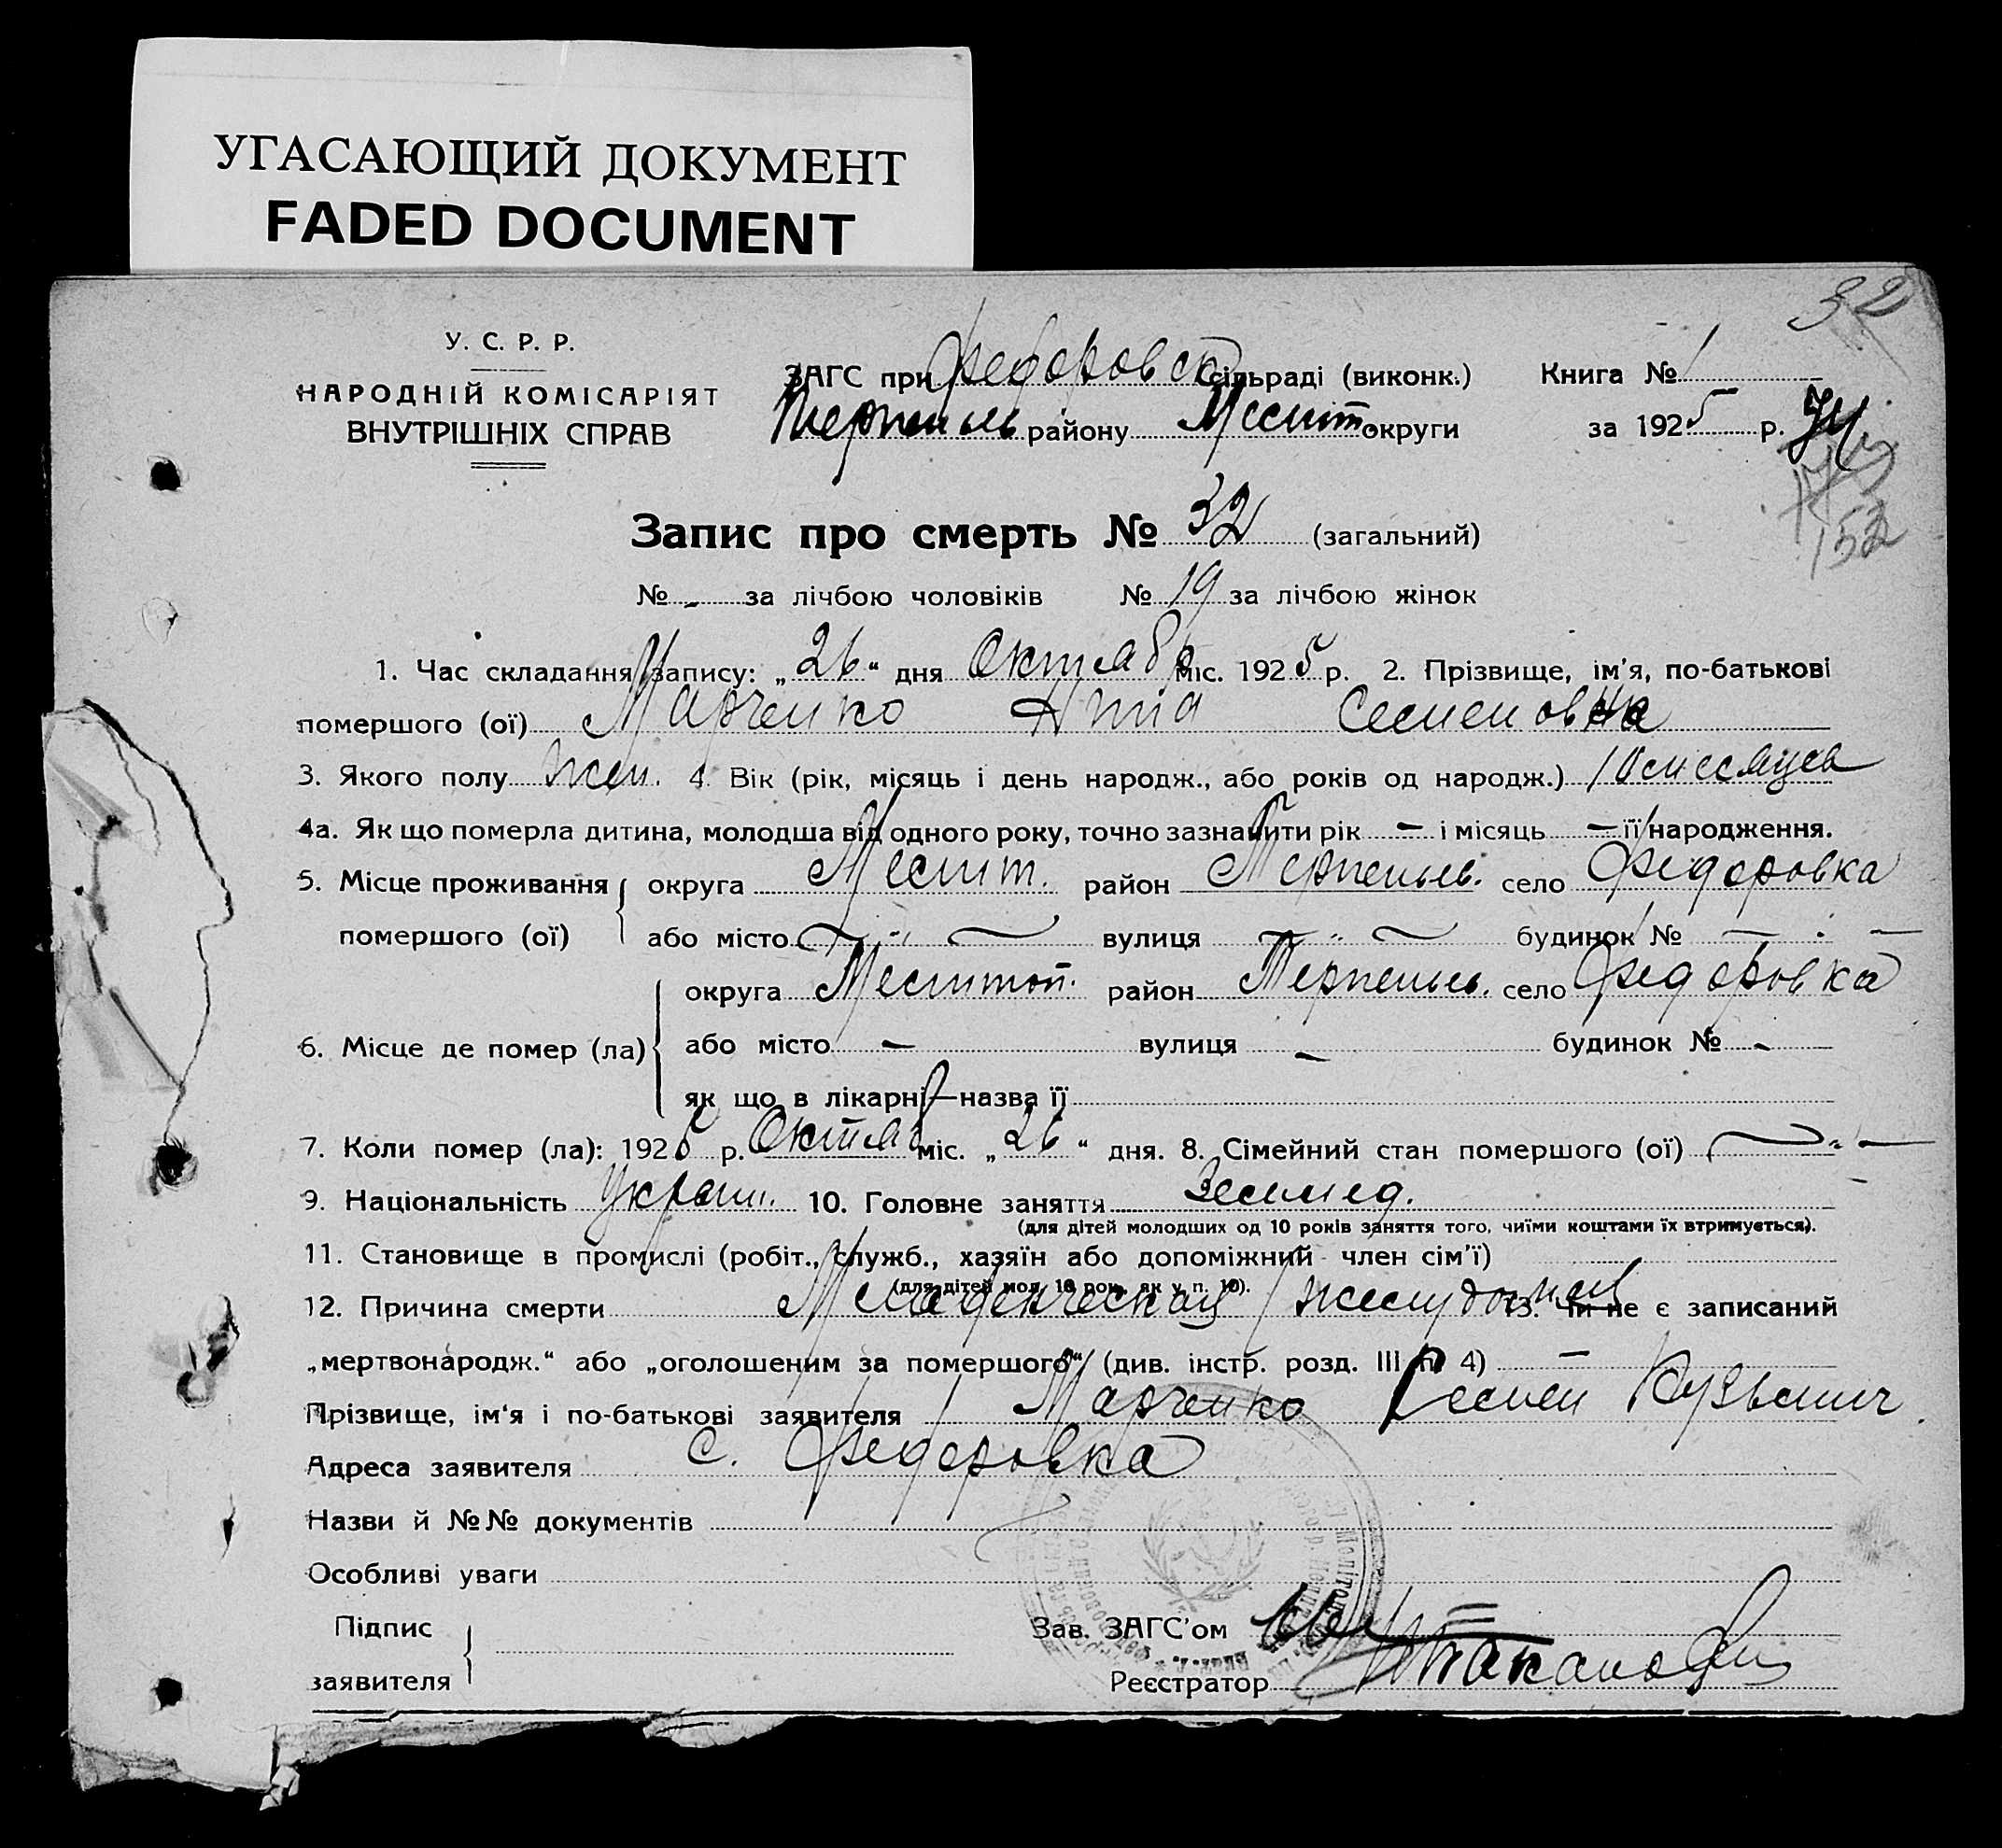 УГАСАЮЩИЙ ДОКУМЕНТ
FADED DOCUMENT
32
У. С. Р. Р.
НАРОДНІЙ КОМІСАРІЯТ
ВНУТРІШНІХ СПРАВ
ЗАГС при Федоровск сільраді (виконк.) Книга № 1
району Мелит округи за 1925 р.
152
Запис про смерть № 32 (загальний)
№ - за лічбою чоловіків № 19 за лічбою жінок
1. Час складання запису: „26“ дня Октября міс. 1925 р. 2. Прізвище, ім'я, по-батькові
помершого (ої) Марченко Анна Семеновна
3. Якого полу жен. 4. Вік (рік, місяць і день народж., або років од народж.) 10 месяцев
4а. Як що померла дитина, молодша від одного року, точно зазначити рік — і місяць — її народження.
5. Місце проживання округа Мелит. район Терпеньев. село Федоровка
помершого (ої) або місто — „ — вулиця — „ — будинок № — . —
округа Мелитоп. район Терпеньев. село Федоровка
6. Місце де помер (ла) або місто — вулиця — будинок № -
як що в лікарні—назва її
7. Коли помер (ла): 1925 р. Октяб міс. „26“ дня. 8. Сімейний стан помершого (ої) — „ —
9. Національність Украин. 10. Головне заняття Землед.
(для дітей молодших од 10 років заняття того, чиїми коштами їх втримується).
11. Становище в промислі (робіт., служб., хазяїн або допоміжний член сім'ї)
(для дітей мол. 10 рок. як у п. 10).
12. Причина смерти Младенческая желудочная 13. Чи не є записаний
„мертвонародж.“ або „оголошеним за помершого“ (див. інстр. розд. III п. 4) —
Прізвище, ім'я і по-батькові заявителя Марченко Семен Кузьмич.
Адреса заявителя с. Федоровка
Назви й №№ документів
Особливі уваги
Підпис Зав. ЗАГС'ом
заявителя Реєстратор